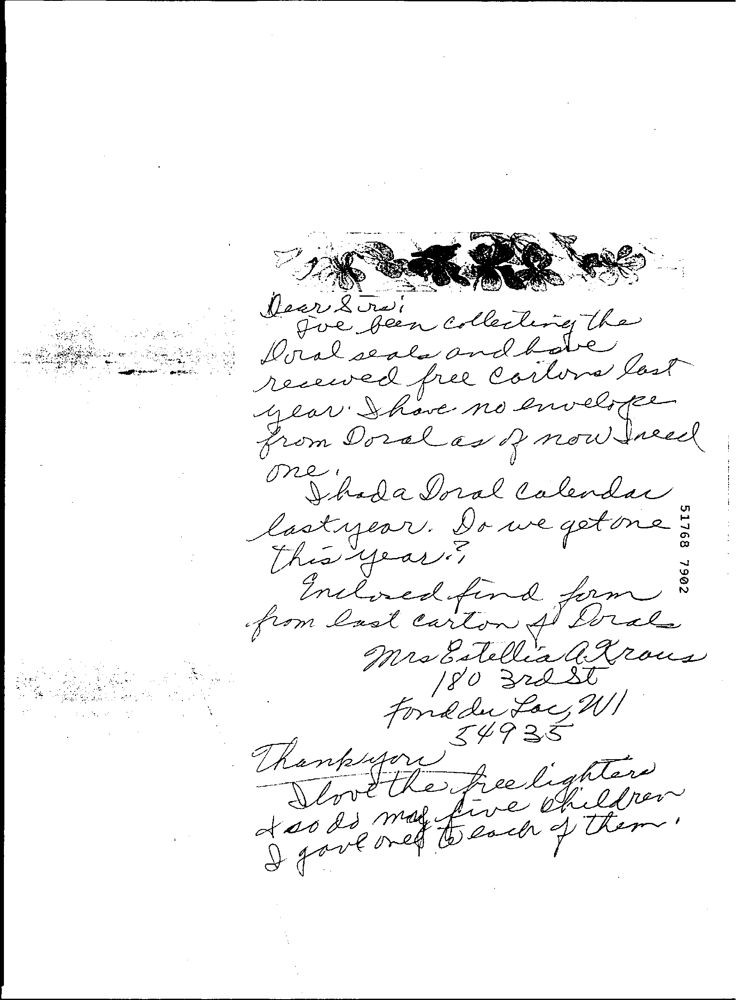 Dear Sirs:
I've been collecting the
Doral seals and have
received free cartons last
year. I have no envelope
from Doral as of now I need
one.
I had a Doral calendar
last year. Do we get one
this year?
Enclosed find form
from last carton of Dorals
Mrs Estellia A. Kraus
180 3rd St
Fond du Lac, WI
54935
Thank you
I love the free lighters
& so do my five children
I gave one to each of them.
51768 7902